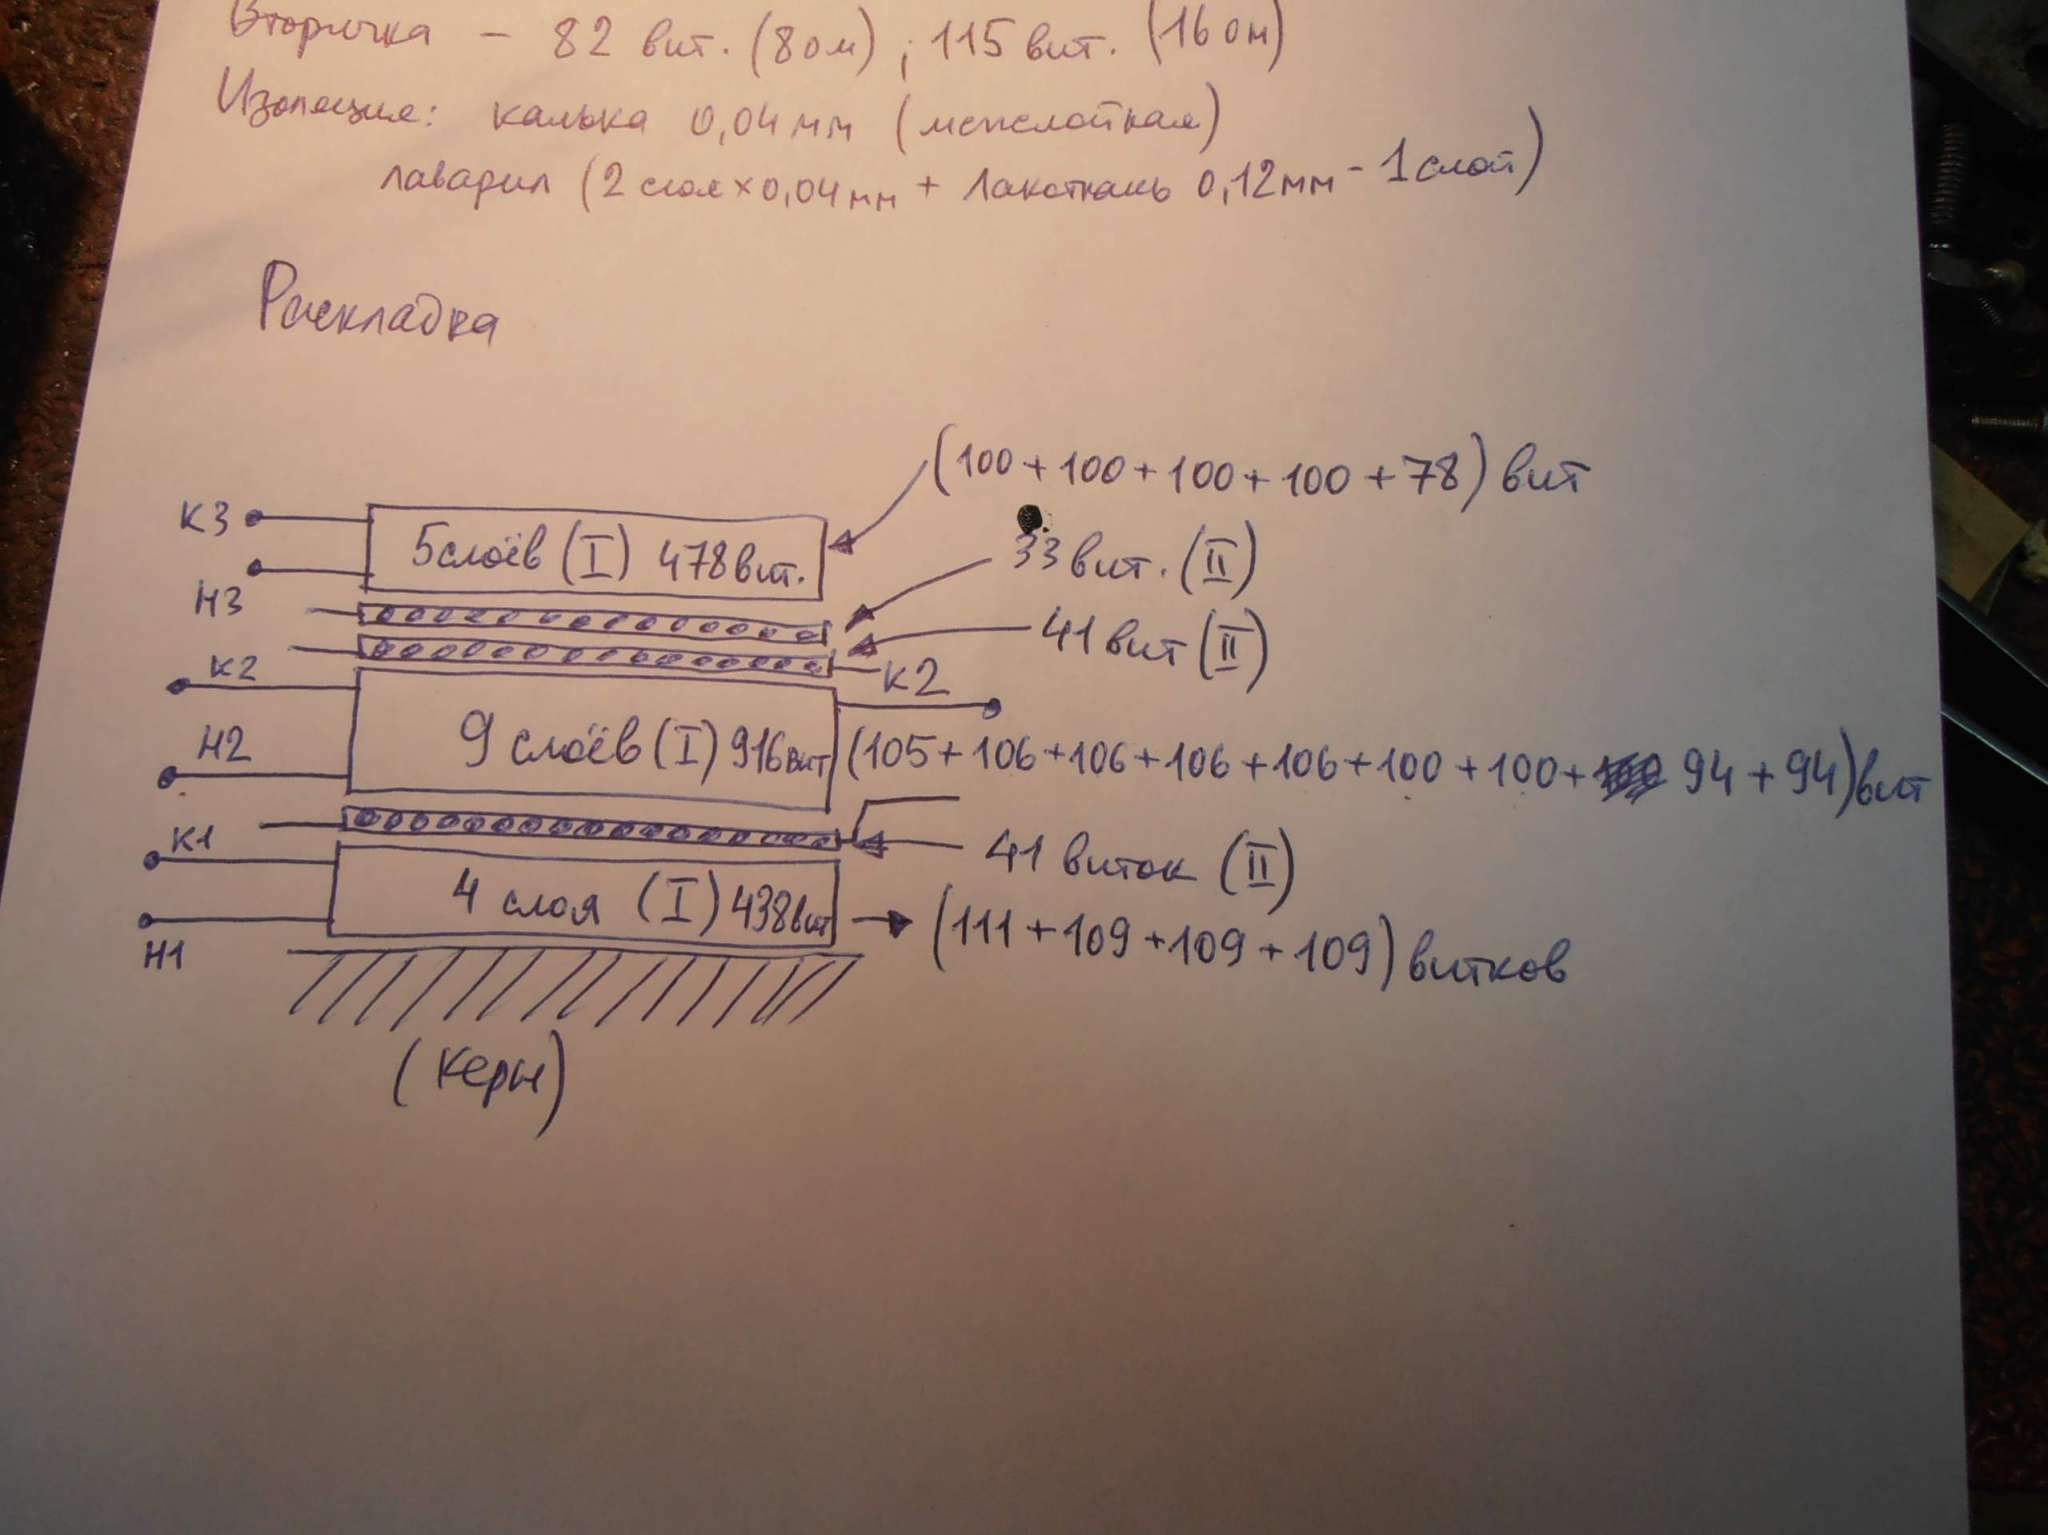 Вторичка – 82 вит. (8ом) ; 115 вит. (16 ом)
Изоляция: калька 0,04 мм (межслойная)
лаварил (2 слоя × 0,04 мм + Лакоткань 0,12 мм - 1 слой)
Раскладка
(100 + 100 + 100 + 100 + 78) вит
К3
5 слоёв (I) 478 вит.
33 вит. (II)
Н3
41 вит (II)
К2
К2
Н2
9 слоёв (I) 916 вит
(105 + 106 + 106 + 106 + 106 + 100 + 100 + 94 + 94) вит
К1
41 виток (II)
4 слоя (I) 438 вит
(111 + 109 + 109 + 109) витков
Н1
(керн)